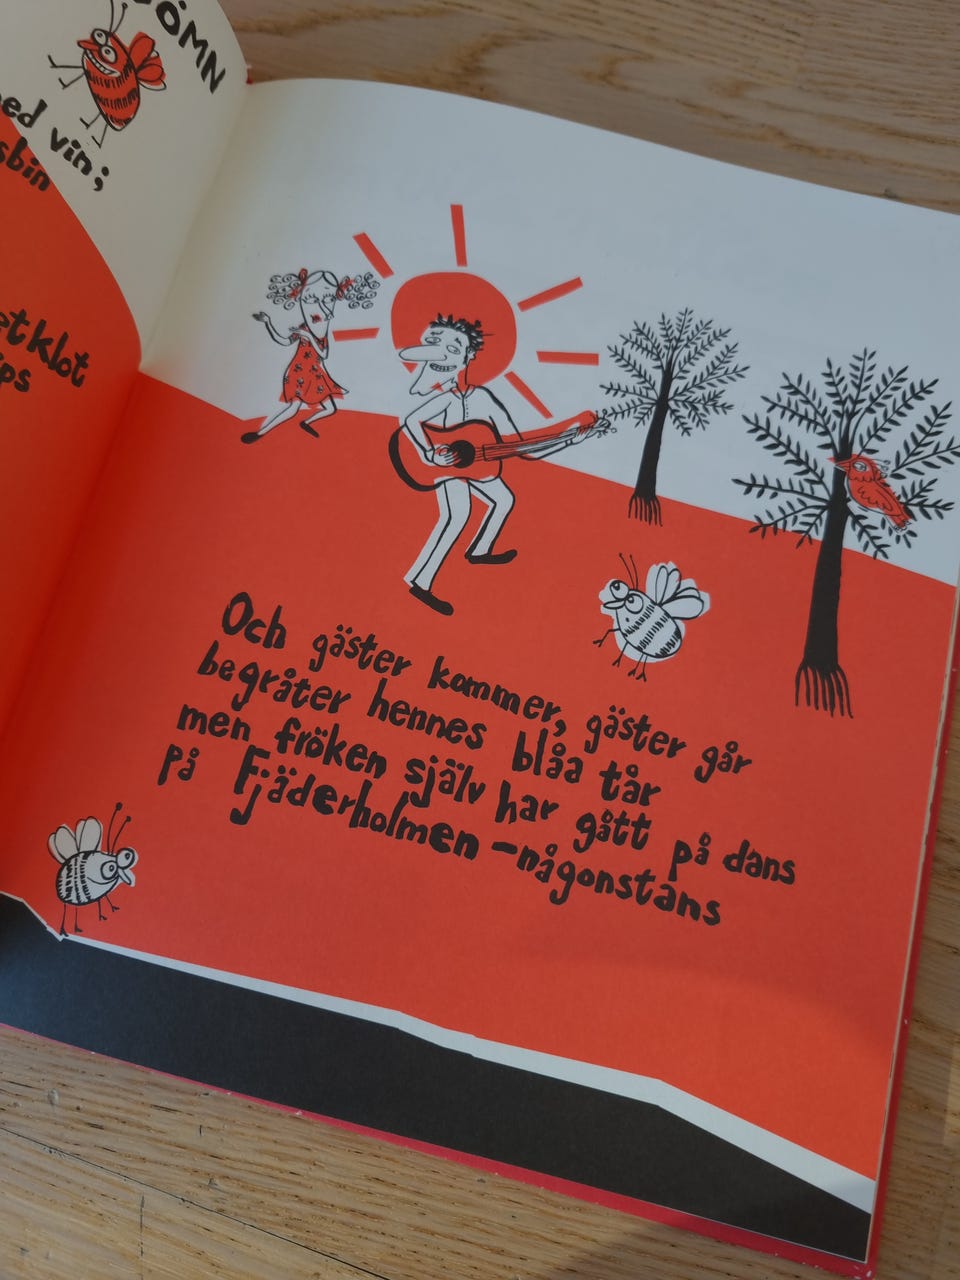 vin;
klot
Och gäster kommer, gäster går
begråter hennes blåa tår
men fröken själv har gått på dans
på Fjäderholmen - någonstans